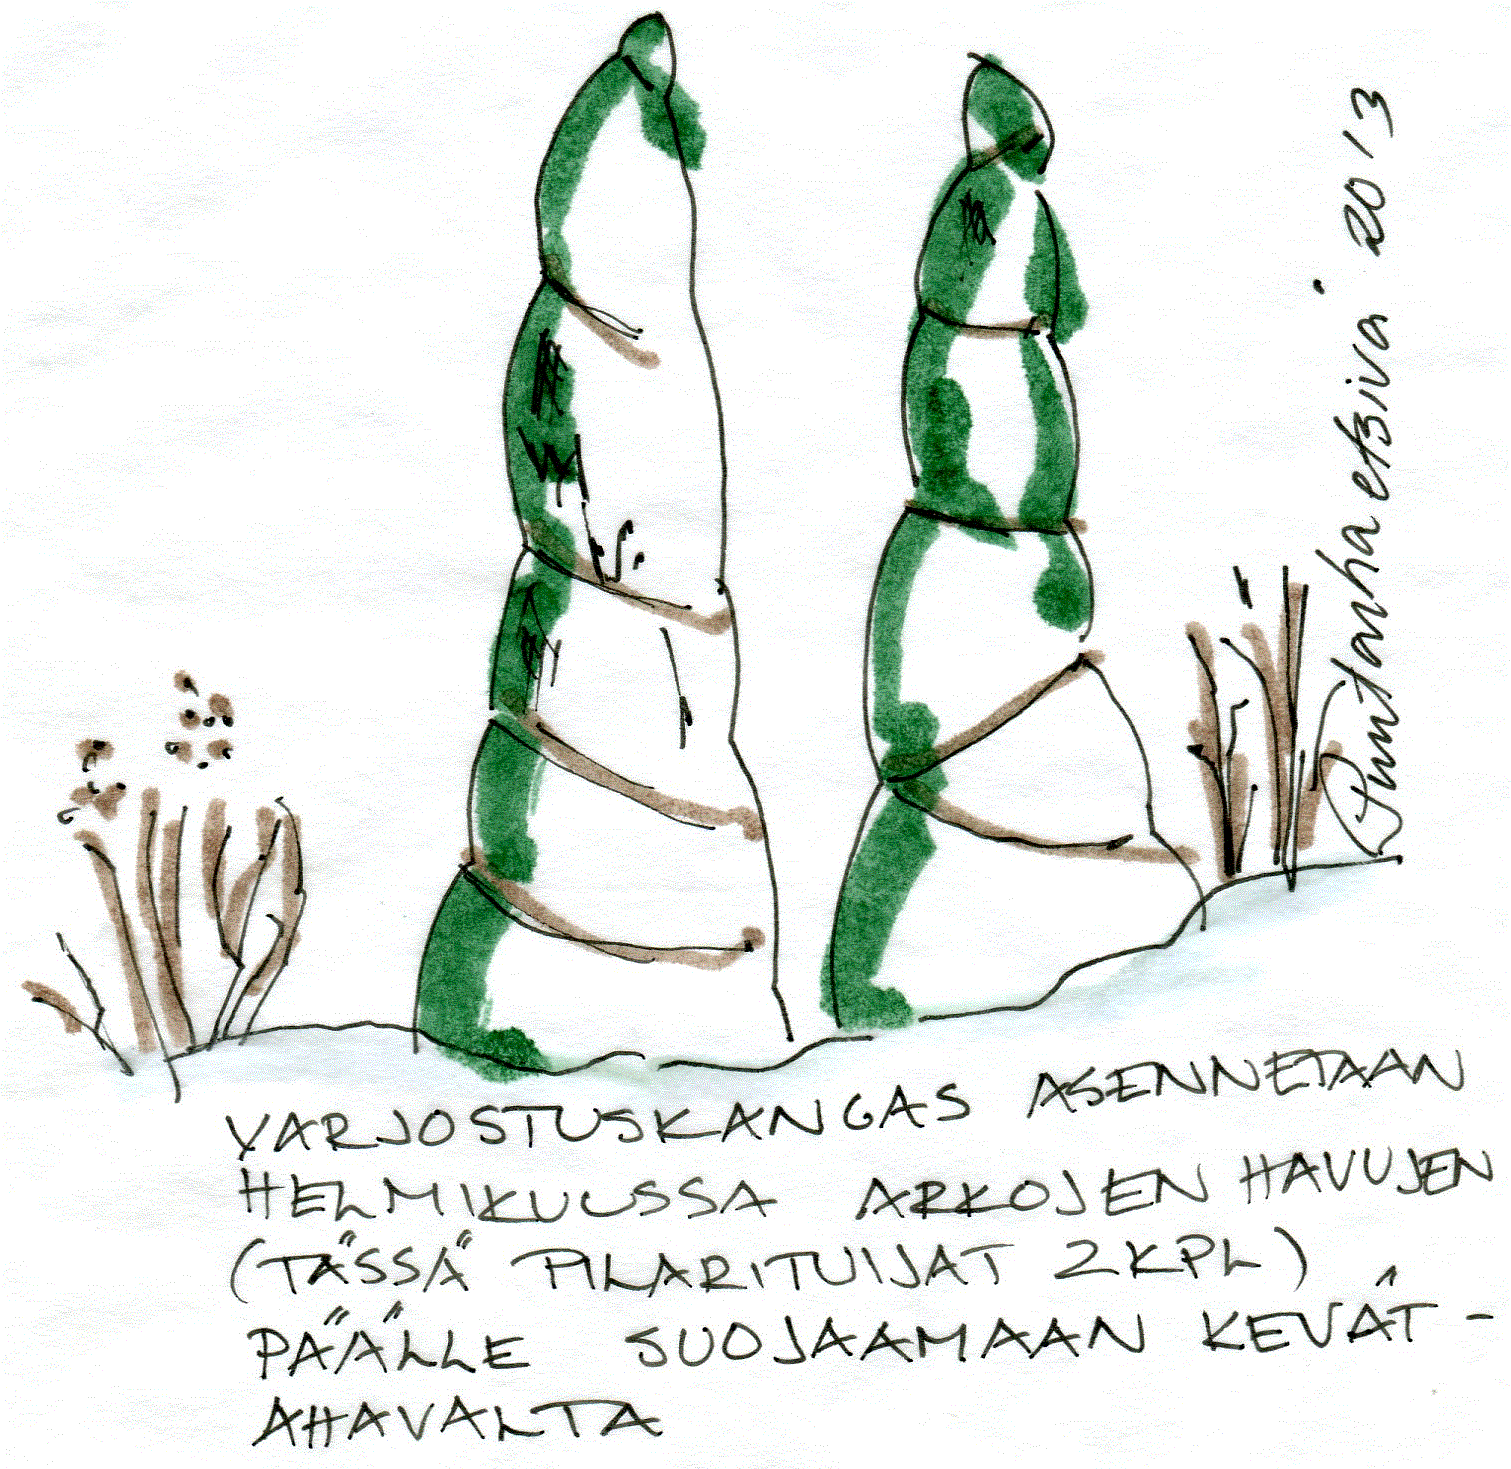 Puutarha etsivä 2013
VARJOSTUSKANGAS ASENNETAAN
HELMIKUUSSA ARKOJEN HAVUJEN
(TÄSSÄ PILARITUIJAT 2KPL)
PÄÄLLE SUOJAAMAAN KEVÄT-
AHAVALTA